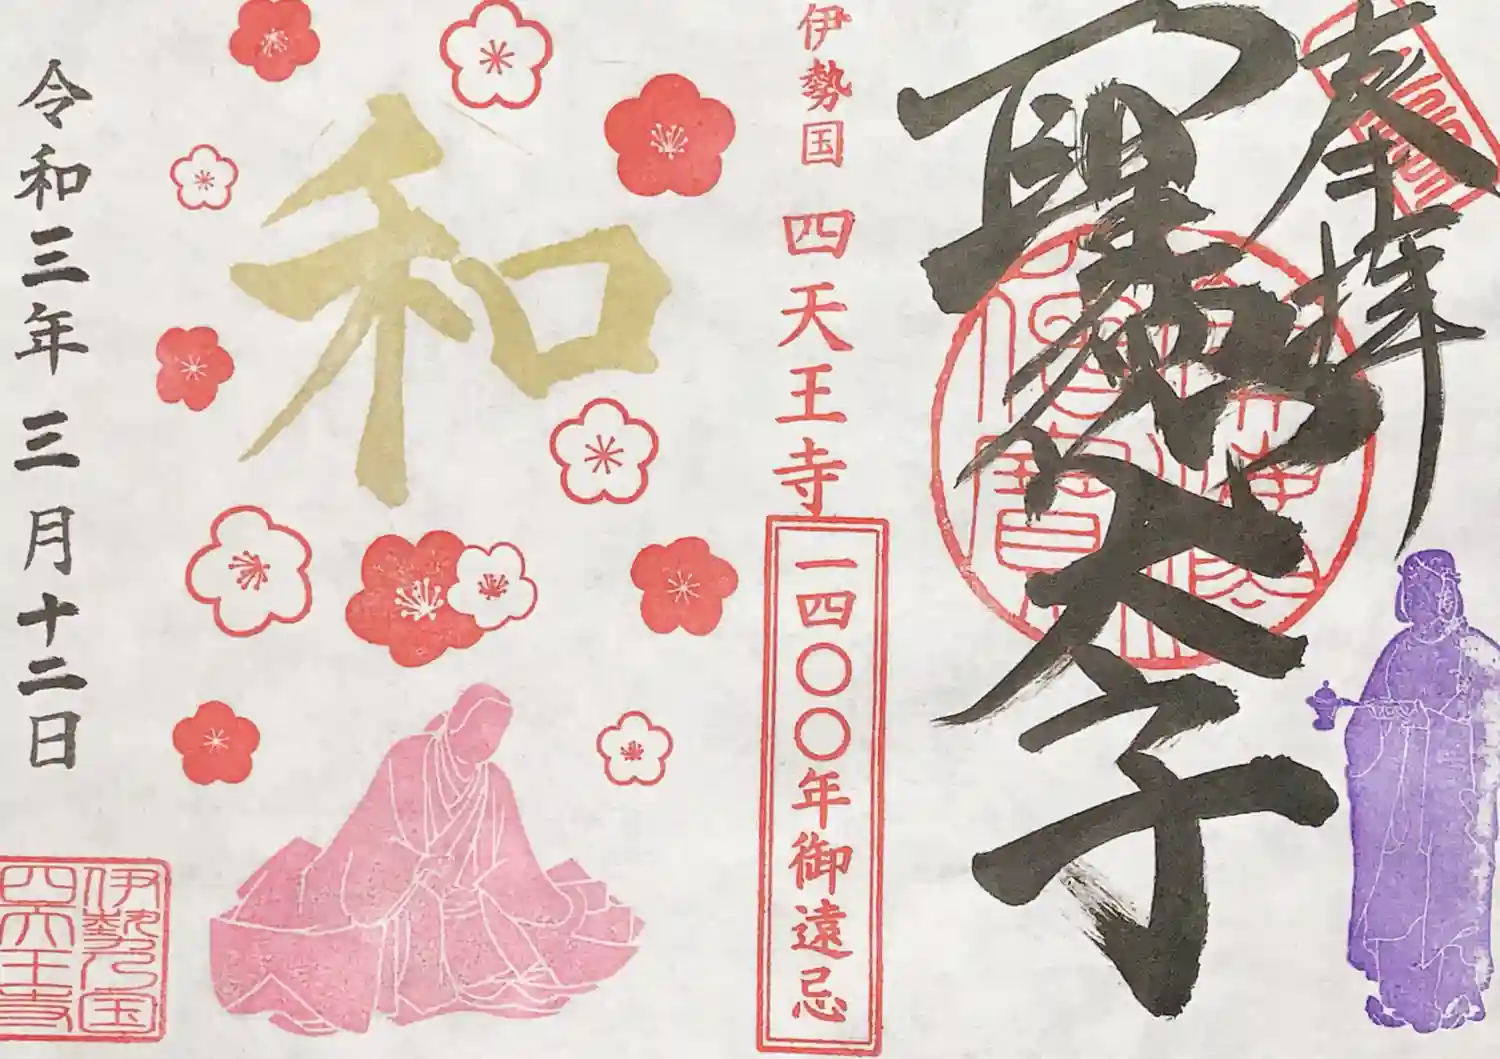 奉拝
聖徳太子
伊勢国 四天王寺
一四〇〇年御遠忌
和
令和三年 三月十二日
伊勢乃国
四天王寺